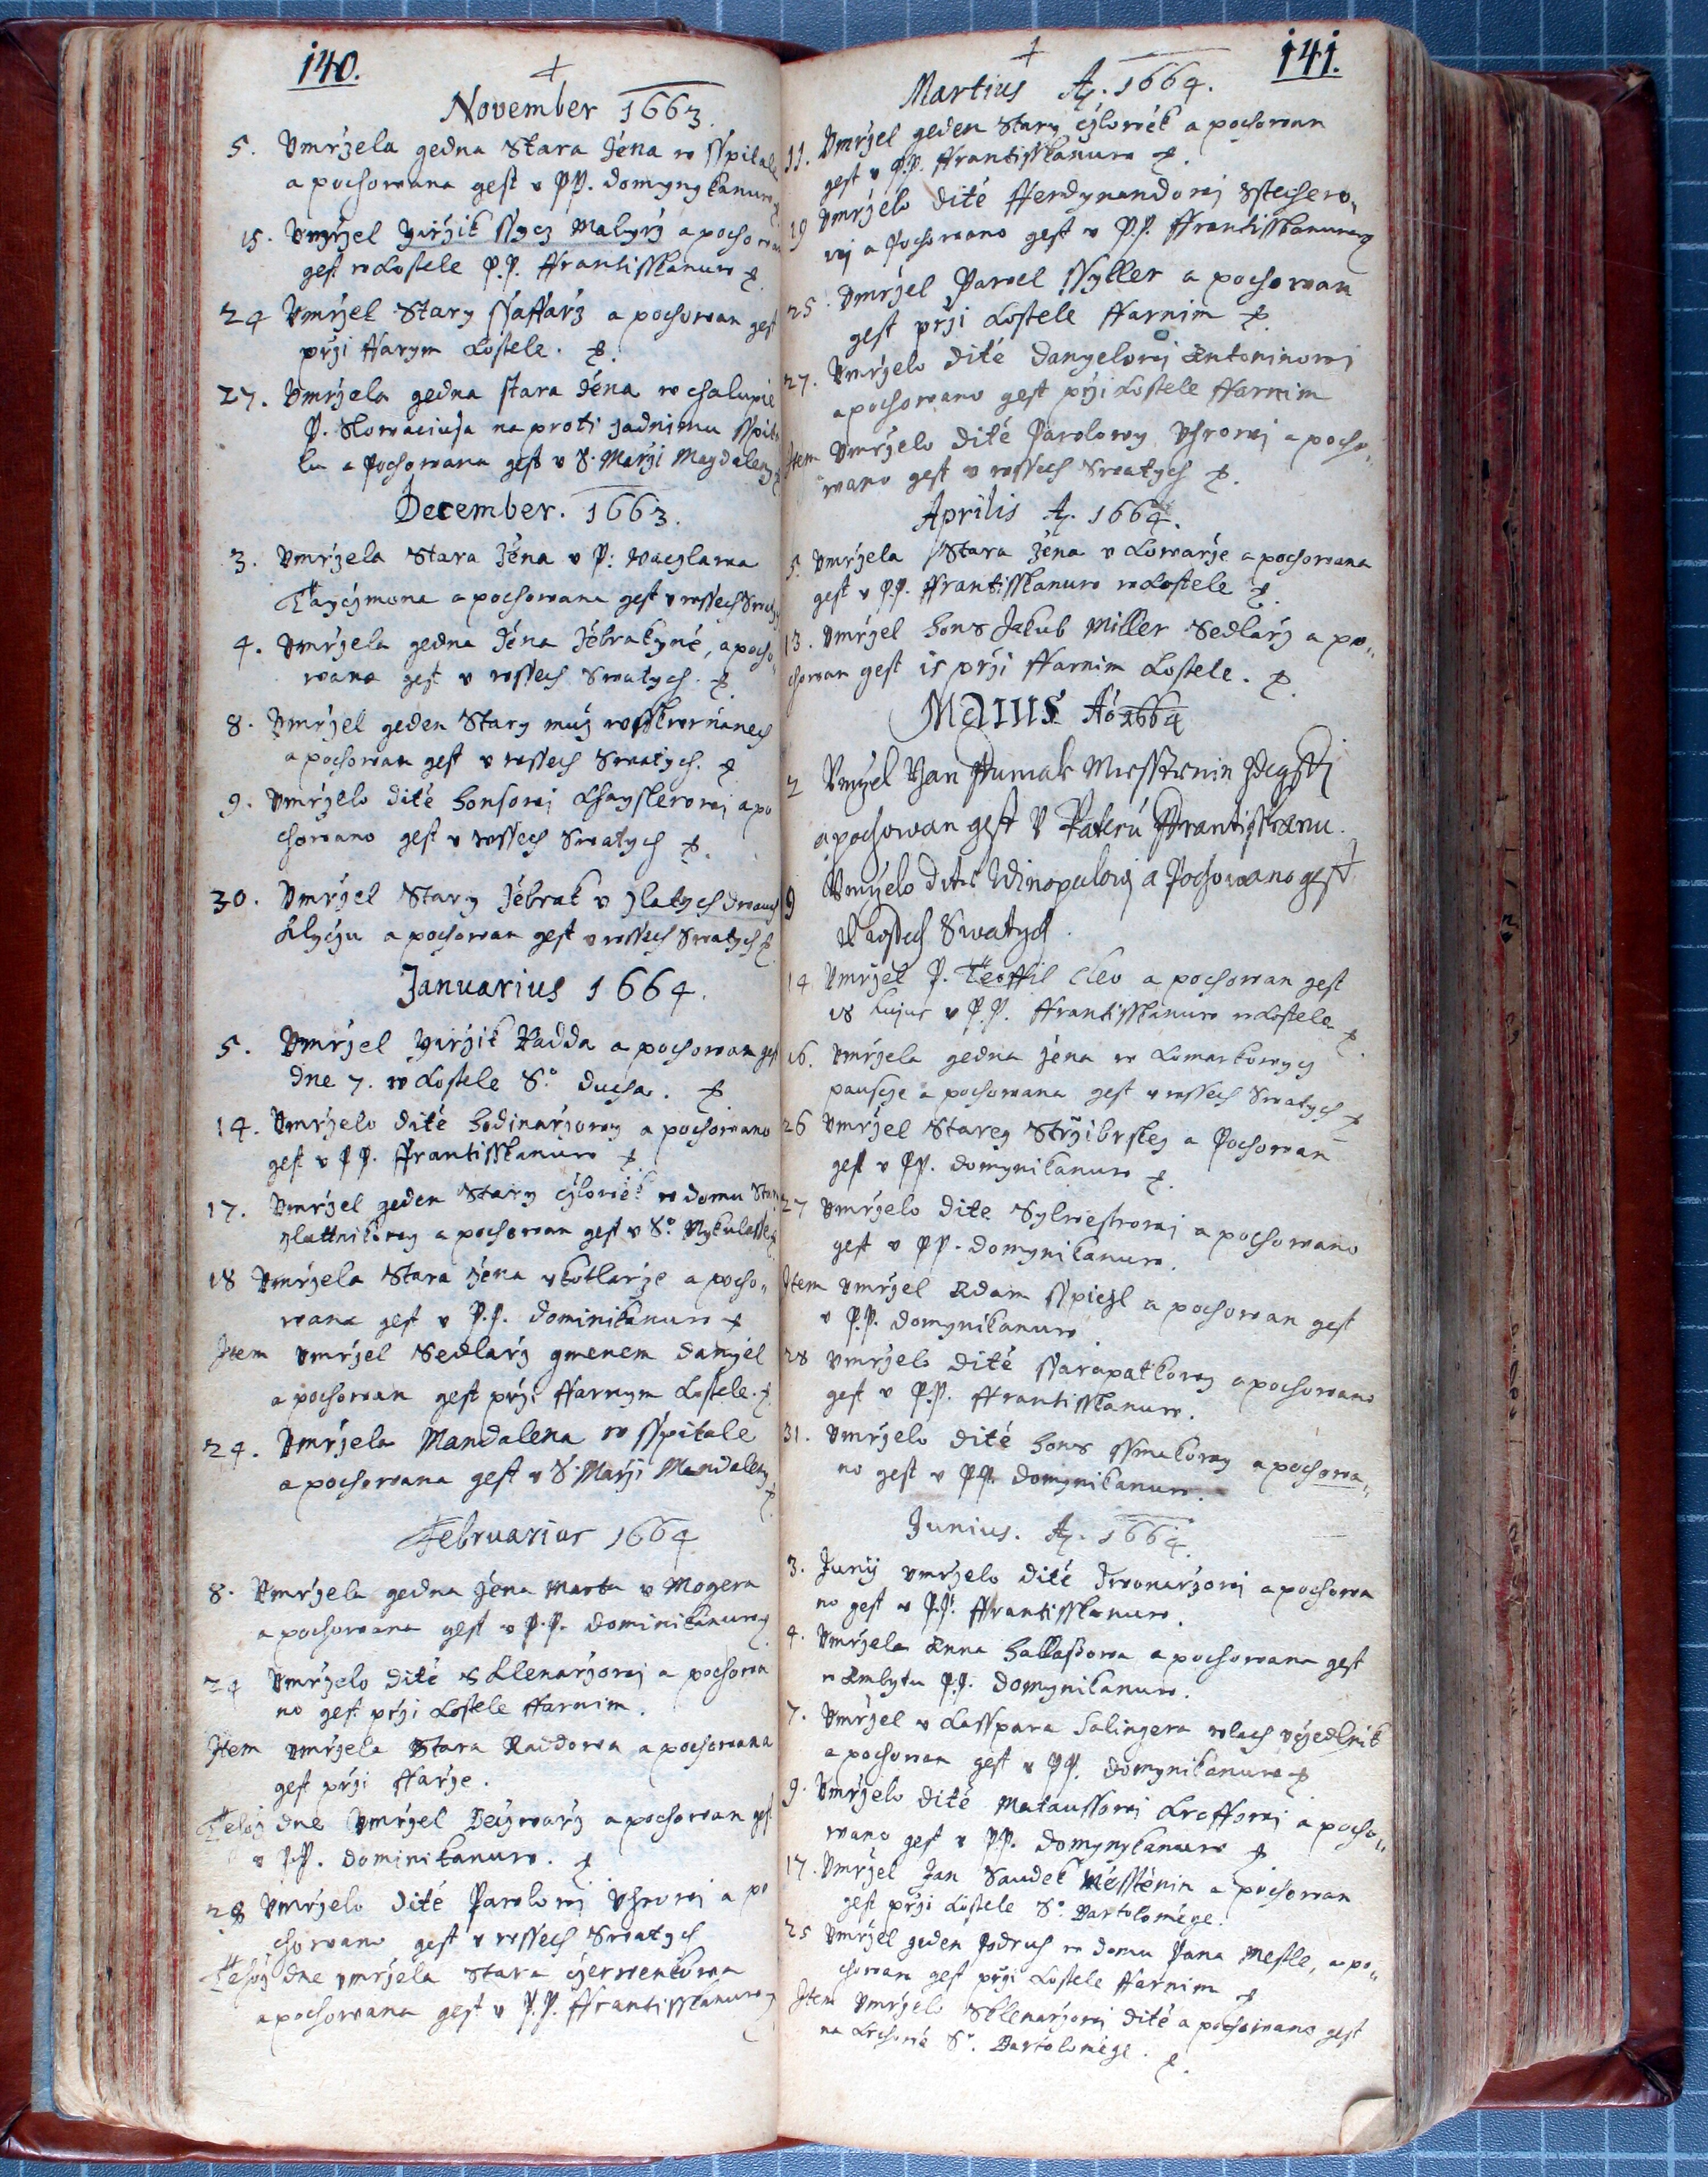 140.
November 1663.
5. Vmrżela gedna Stara żéna w sspitale
a pochowana gest v PP. domynykanuw
15. Vmrżel Yiržik ssycz Malyrż a pochowan
gest w kostele P.P. Frantisskanuw
24 Vmrżel Stary ssaffarż a pochowan gest
prżi Farym kostele.
27. Vmrżela gedna stara żéna w chalupie
P. Slowaciusa na proti zadnimu sspita
lu a Pochowana gest v S. Marżi Magdaleny
December. 1663.
3. Vmrżela Stara żéna v P: Waczlawa
a pochowana gest v wssech Swatych
4. Vmrżela gedna żéna żébrakyné, a pocho„
wana gest v wssech Swatych.
8. Vmrżel geden Stary muż
a pochowan gest v wssech Swatych.
9. Vmrżelo dité honsowi a po
chowano gest v wssech Swatych
30. Vmrżel Stary żébrak v zlatych dwauch
klyczu a pochowan gest v wssech Swatych
Januarius 1664.
5. Vmrżel Yirżik Radda a pochowan gest
dne 7. w kostele S.º ducha.
14. Vmrżelo dité hodinarżowy a pochowano
gest v PP. Frantisskanuw
17. Vmrżel geden Stary człowěk w domu
zlattnikowy a pochowan gest v S.º Mykulasse
18 Vmrżela Stara żena v kotlarże a pocho„
wana gest v P.P. dominikanuw
Item vmrżel Sedlarż gmenem danyel
a pochowan gest prżi Farnym kostele.
24. Vmrżela Mandalena w sspitale
a pochowana gest v S. Marżi Mandaleny
Februarius 1664
8. Vmrżela gedna żena Marta v Mogera
a pochowana gest v P.P. dominikanuw
24 Vmrżelo dité Sklenarżowi a pochowa
no gest prżi kostele Farnim.
Item vmrżela Stara Raddowa a pochowana
gest prżi Farże.
Tehoż dne Vmrżel a pochowan gest
v PP. dominikanuw.
28 Vmrżelo dité Pawlowi Vhrowi a po
chowano gest v wssech Swatych
Tehoż dne vmrżela Stara czerwenkowa
a pochowana gest v P.P. Frantisskanuw
141.
Martius Aº. 1664.
11. Vmrżel geden Stary człowěk a pochowan
gest v P.P. Frantisskanuw
19 Vmrżelo dité Ferdynandowi
wi a Pochowano gest v P.P. Frantisskanuw
25. Vmrżel Pawel ssyller a pochowan
gest prżi kostele Farnim
27. Vmrżelo dité danyelowi Antoninowi
a pochowano gest prżi kostele Farnim
Item Vmrżelo dité Pawlowy Vhrowi a pocho„
wano gest v wssech Swatych
Aprilis Aº. 1664.
5. Vmrżela Stara żéna v kowarże a pochowana
gest v P.P. Frantisskanuw w kostele
13. Vmrżel hons Jakub Miller Sedlarż a po„
chowan gest 15 prżi Farnim kostele.
MAIUS Aó 1664
2 Vmrżel Yan
a pochowan gest V Pateru Frantisskanu.
9 Vmrżelo dité Winopalowi a Pochowano gest
V wssech Swatych.
14 Vmrżel P. Teoffil a pochowan gest
18 hujus v P.P. Frantisskanuw w kostele
16. Vmrżela gedna żena w
a pochowana gest v wssech Swatych
26 Vmrżel Starey Strżibrskey a Pochowan
gest v PP. domynikanuw
27 Vmrżelo dite Sylwestrowi a pochowano
gest v PP. domynikanuw.
Item Vmrżel Adam sspiegl a pochowan gest
v P.P. domynikanuw.
28 Vmrżelo dité ssarapatkowy a pochowano
gest v P.P. Frantisskanuw.
31. Vmrżelo dité hons ssmakowy a pochowa„
no gest v PP. domynikanuw.
Junius. Aº. 1664.
3. Junij vmrżelo dité a pochowa
no gest v P.P. Frantisskanuw.
4. Vmrżela Anna a pochowana gest
w Ambytu P.P. domynikanuw.
7. Vmrżel v kasspara Salingera wlach
a pochowan gest v PP. domynikanuw
9. Vmrżelo dité Mataussowi kroffowi a pocho„
wano gest v PP. domynykanuw
17. Vmrżel Jan Saudek Mésstěnin a pochowan
gest prżi kostele S.º Bartoloměge.
25 Vmrżel geden Podruh w domu Pana Mestle, a po„
chowan gest prżi kostele Farnim
Item Vmrżelo Sklenarżowi dité a pochowano gest
na krchowě S.º Bartoloměge.